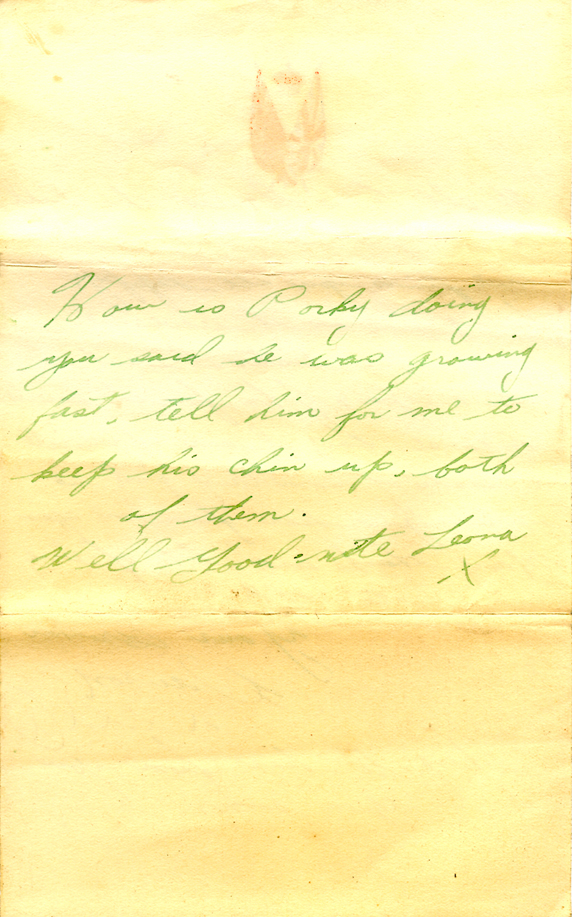 How is Porky doing
you said he was growing
fast, tell him for me to
keep his chin up, both
of them.
Well Good-nite Leona
X